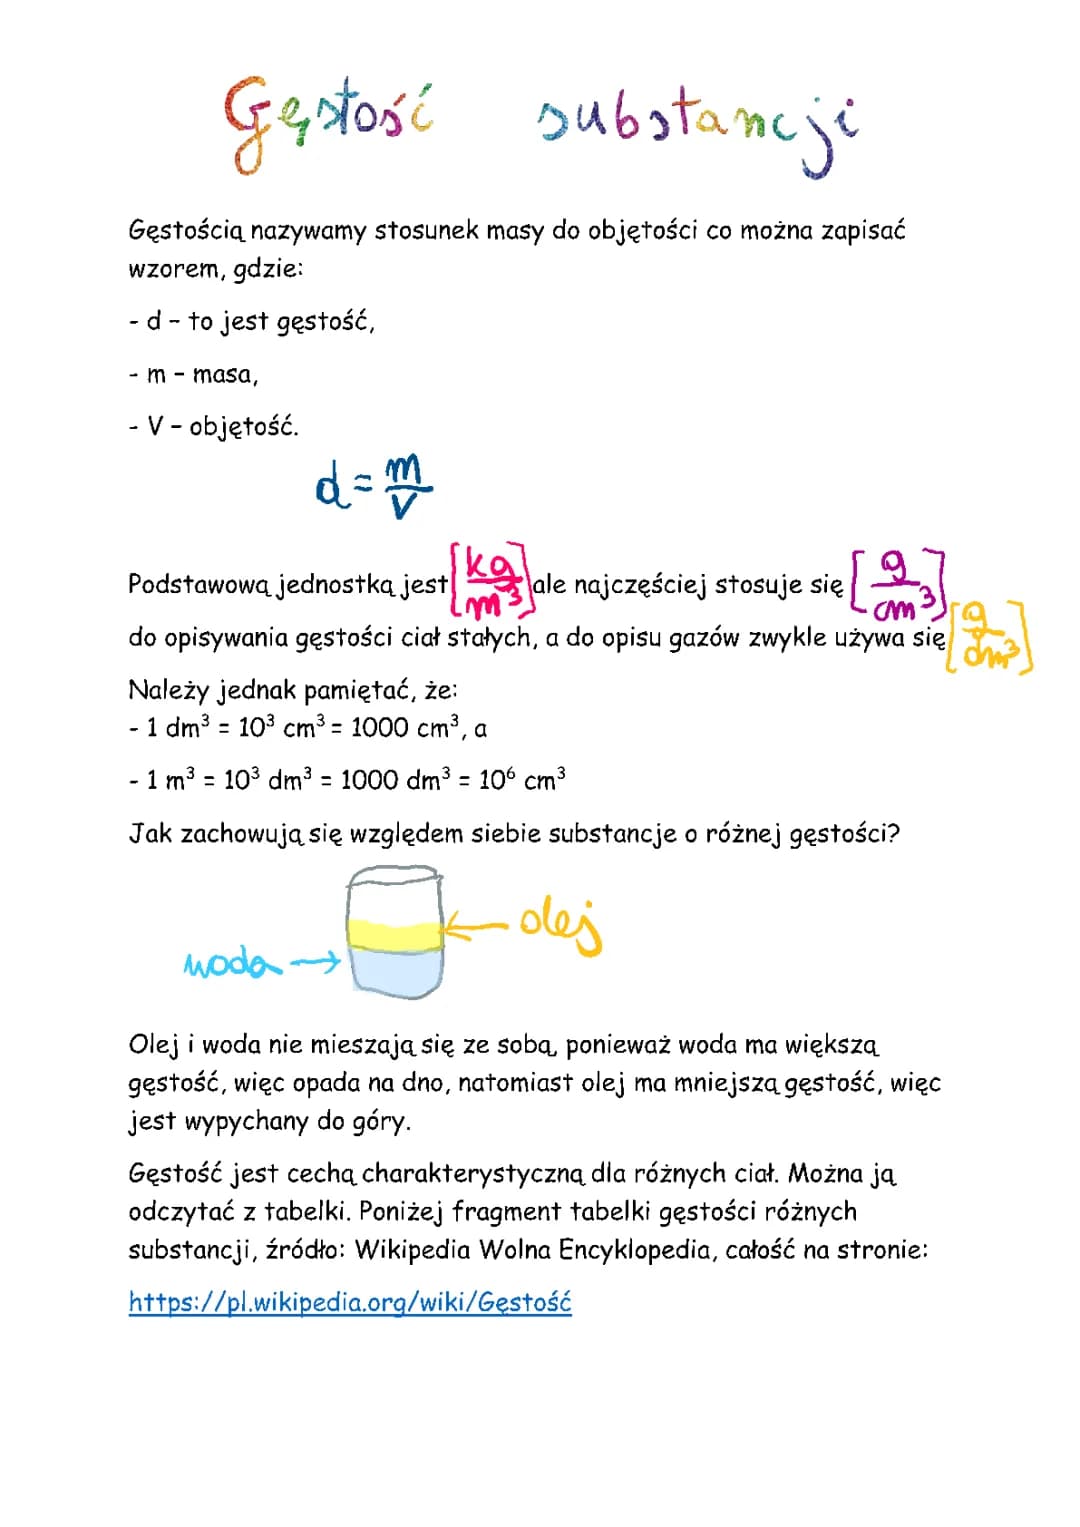 Gęstość substancji
Gęstością nazywamy stosunek masy do objętości co można zapisać
wzorem, gdzie:
- d – to jest gęstość,
- m – masa,
- V – objętość.
d = m/V
Podstawową jednostką jest [kg/m³] ale najczęściej stosuje się [g/cm³]
do opisywania gęstości ciał stałych, a do opisu gazów zwykle używa się [g/dm³]
Należy jednak pamiętać, że:
- 1 dm³ = 10³ cm³ = 1000 cm³, a
- 1 m³ = 10³ dm³ = 1000 dm³ = 10⁶ cm³
Jak zachowują się względem siebie substancje o różnej gęstości?
olej
woda
Olej i woda nie mieszają się ze sobą, ponieważ woda ma większą
gęstość, więc opada na dno, natomiast olej ma mniejszą gęstość, więc
jest wypychany do góry.
Gęstość jest cechą charakterystyczną dla różnych ciał. Można ją
odczytać z tabelki. Poniżej fragment tabelki gęstości różnych
substancji, źródło: Wikipedia Wolna Encyklopedia, całość na stronie:
https://pl.wikipedia.org/wiki/Gęstość